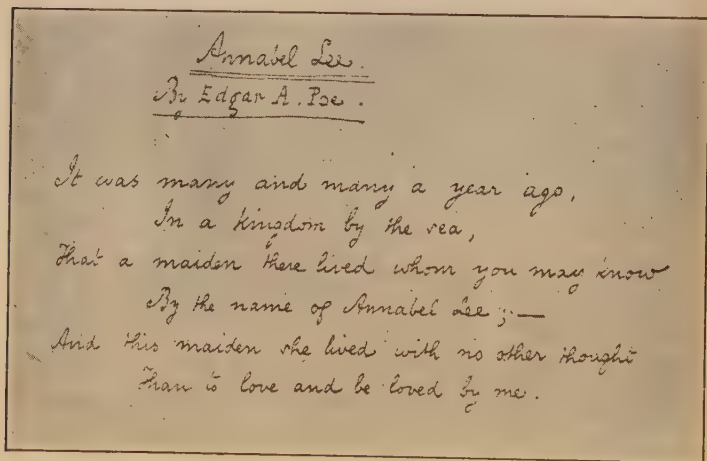 Annabel Lee.
By Edgar A. Poe.
It was many and many a year ago,
In a kingdom by the sea,
That a maiden there lived whom you may know
By the name of Annabel Lee;—
And this maiden she lived with no other thought
Than to love and be loved by me.